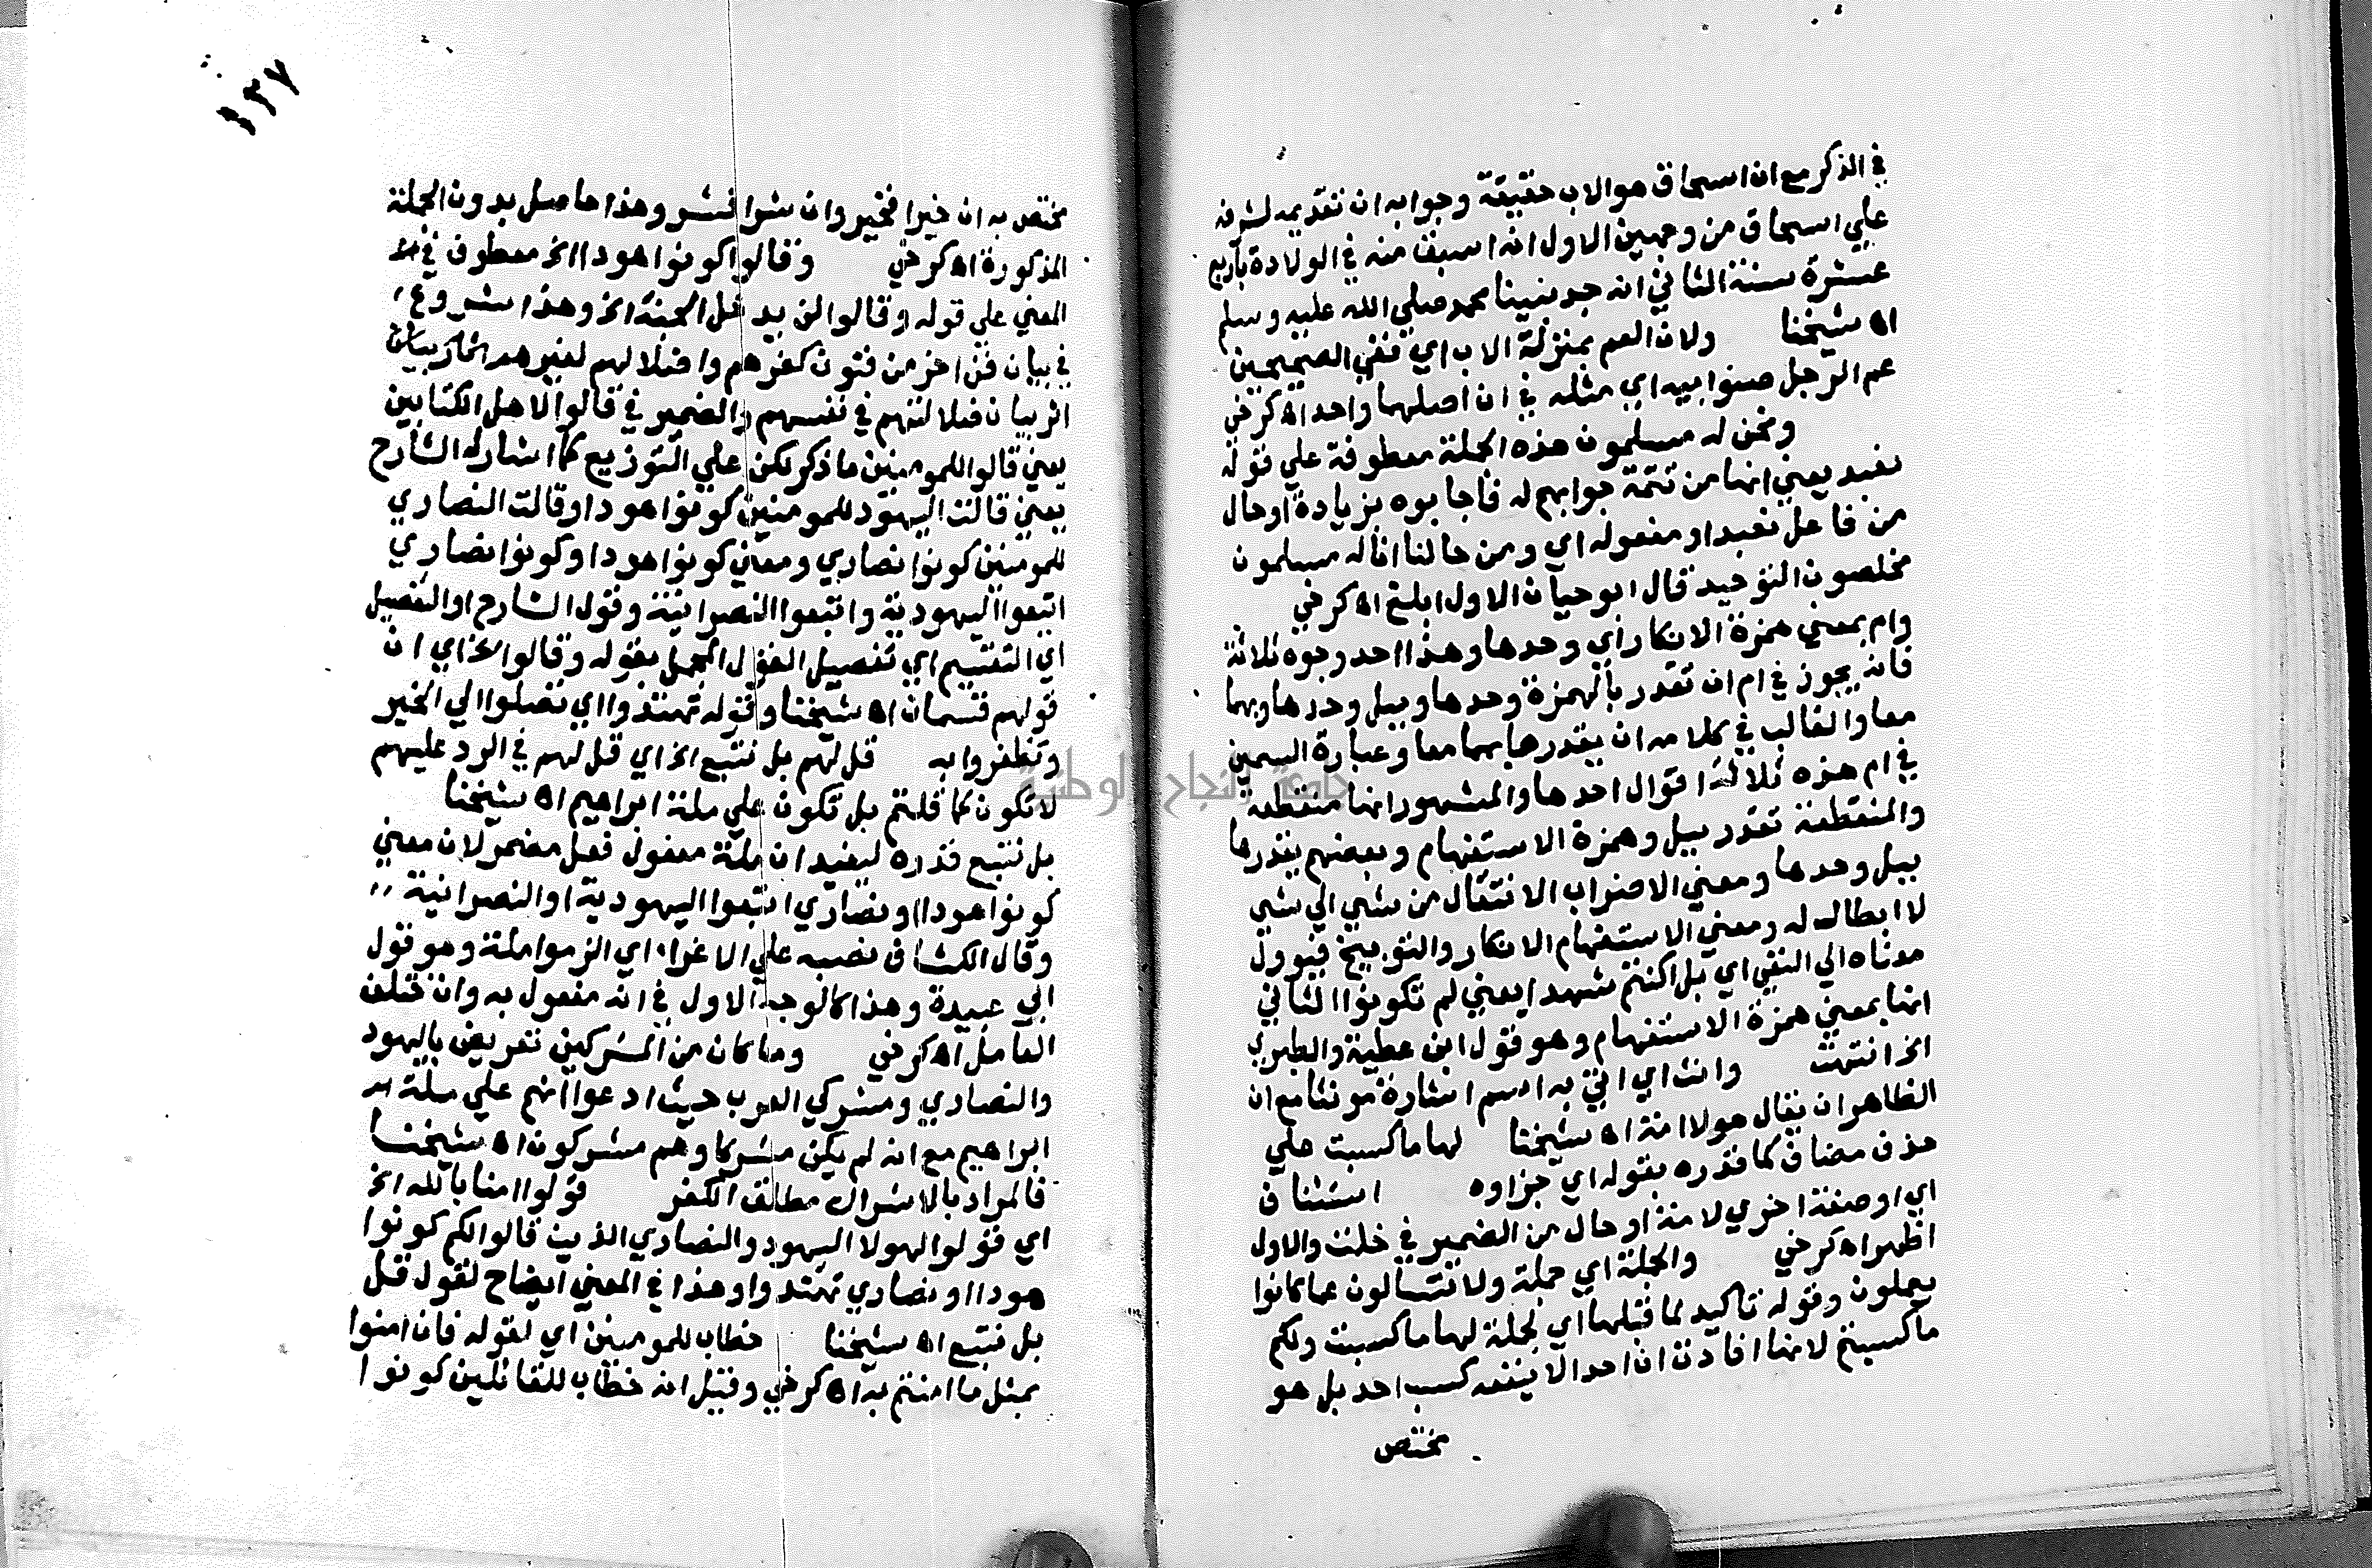 في الذكر مع ان اسحاق هو الاب حقيقة وجوابه ان تقديمه لشرفه
علي اسحاق من وجهين الاول انه اسبق منه في الولادة باربع
عشرة سنة الثاني انه جد نبينا محمد صلي الله عليه وسلم
اه شيخنا ولان العم بمنزلة الاب اي ففي الصحيحين
عم الرجل صنو ابيه اي مثله في ان اصلهما واحد اه كرخي
ونحن له مسلمون هذه الجملة معطوفة علي قوله
نعبد يعني انها من تتمة جوابهم له فاجابوه بزيادة او حال
من فاعل نعبد او مفعوله اي ومن حالنا انا له مسلمون
مخلصون التوحيد قال ابو حيان الاول ابلغ اه كرخي
وام بمعني همزة الانكار اي وحدها وهذا احد وجوه ثلاثة
فانه يجوز في ام ان تقدر بالهمزة وحدها وببل وحدها وبهما
معا والغالب في كلامه ان يقدرها بهما معا وعبارة السمين
في ام هذه ثلاثة اقوال احدها والمشهور انها منقطعة
والمنقطعة تقدر ببل وهمزة الاستفهام وبعضهم يقدرها
ببل وحدها ومعني الاضراب الانتقال من شي الي شي
لا ابطال له ومعني الاستفهام الانكار والتوبيخ فيوول
معناه الي النفي اي بل اكنتم شهدا يعني لم تكونوا الثاني
انها بمعني همزة الاستفهام وهو قول ابن عطية والطبري
الخ انتهت وانث اي اتي به اسم اشارة مونثا مع ان
الظاهر ان يقال هولا امة اه شيخنا لها ما كسبت علي
حذف مضاف كما قدره بقوله اي جزاوه استئناف
اي او صفة اخري لامة او حال من الضمير في خلت والاول
اظهر اه كرخي والجملة اي جملة ولا تسالون عما كانوا
يعملون وقوله تاكيد لما قبلها اي لجملة لها ما كسبت ولكم
ما كسبتم لانها افادت ان احدا لا ينفعه كسب احد بل هو
مختص
١٣٧
مختص به ان خيرا فخير وان شرا فشر وهذا حاصل بدون الجملة
المذكورة اه كرخي وقالوا كونوا هودا الخ معطوف في
المعني علي قوله وقالوا لن يدخل الجنة الخ وهذا شروع
في بيان فن اخر من فنون كفرهم واضلالهم لغيرهم اثر بيان
اثر بيان ضلالتهم في نفسهم والضمير في قالوا لاهل الكتابين
يعني قالوا للمومنين ما ذكر لكن علي التوزيع كما اشار له الشارح
يعني قالت اليهود للمومنين كونوا هودا وقالت النصاري
للمومنين كونوا نصاري ومعني كونوا هودا وكونوا نصاري
اتبعوا اليهودية واتبعوا النصرانية وقول الشارح او للتفصيل
اي التقسيم اي تفصيل القول المجمل بقوله وقالوا الخ اي ان
قولهم قسمان اه شيخنا وقوله تهتدوا اي تصلوا الي الخير
وتظفروا به قل لهم بل نتبع الخ اي قل لهم في الرد عليهم
لا نكون كما قلتم بل نكون علي ملة ابراهيم اه شيخنا
بل نتبع قدره ليفيد ان ملة مفعول فعل مضمر لان معني
كونوا هودا او نصاري اتبعوا اليهودية او النصرانية
وقال الكشاف نصبه علي الاغراء اي الزموا ملة وهو قول
ابي عبيدة وهذا كالوجه الاول في انه مفعول به وان اختلف
العامل اه كرخي وما كان من المشركين تعريض باليهود
والنصاري ومشركي العرب حيث ادعوا انهم علي ملة
ابراهيم مع انه لم يكن مشركا وهم مشركون اه شيخنا
فالمراد بالاشراك مطلق الكفر قولوا امنا بالله الخ
اي قولوا لهولا اليهود والنصاري الذين قالوا لكم كونوا
هودا او نصاري تهتدوا وهذا في المعني ايضاح لقول قل
بل نتبع اه شيخنا خطاب للمومنين اي لقوله فان امنوا
بمثل ما امنتم به اه كرخي وقيل انه خطاب للقائلين كونوا